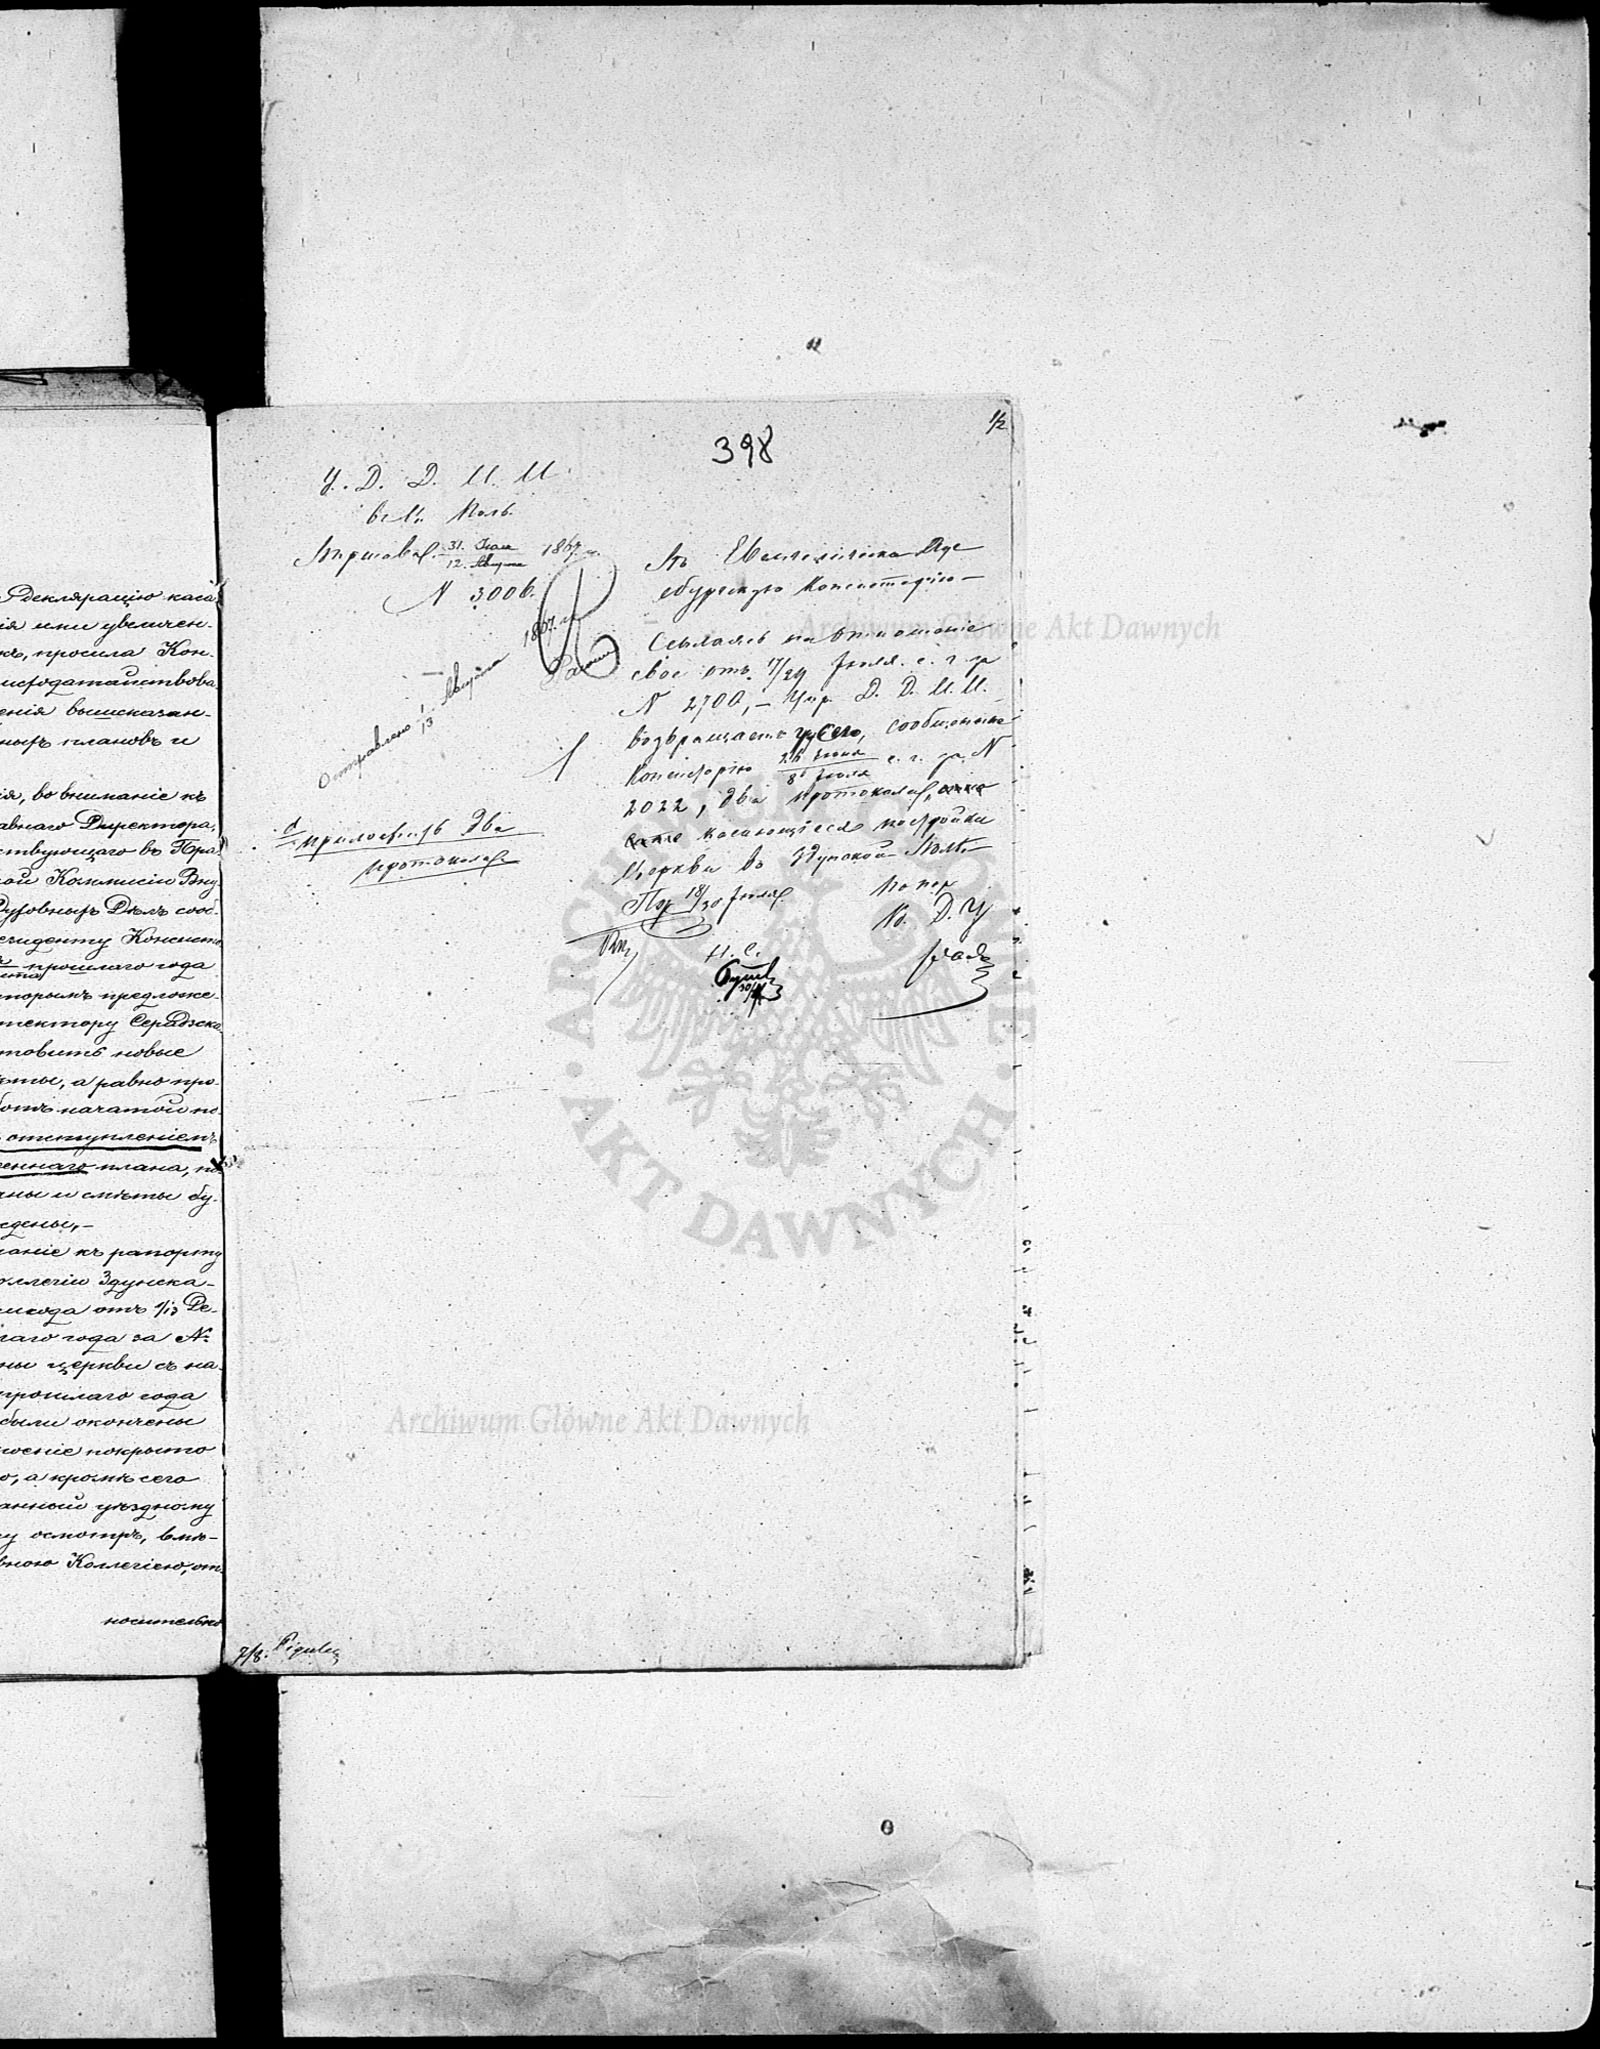 Декларацію каса
ія ими увеличен-
просила Кон-
исходатайствова
енія вышсказан-
ныхъ плановъ и
ія, во вниманіе къ
авнаго Директора,
ствующаго въ Пра
ой Коммисіи Вну
Духовныхъ Дѣлъ сооб-
езиденту Консисто
прошлаго года
торымъ предложе-
тектору Серадзска
товить новые
ѣты, а равно про-
ботъ начатой по
отступленіемъ
еннаго плана, по
ны и смѣты бу-
едены,-
аніе къ рапорту
оллегіи Здунска-
ихода отъ 1/13 Де-
лаго года за №
ны церкви съ на
прошлаго года
были окончены
роеніе покрыто
о, а кромѣ сего
анный уѣздному
у осмотръ, вмѣ-
вною Коллегіею, от
носительно
1/2
398
У. Д. Д. И. И.
в Ц. Поль.
Варшава 31 Іюля / 12 Августа 1867 г.
N 3006.
Отправлено 1/13 Августа 1867 г.
Приложить два
протокола
Въ Евангелическо Аугс
бургскую Консисторію-
Ссылаясь на отношеніе
свое отъ 17/29 Іюля с. г. за
N 2700, - Упр. Д. Д. И. И.
возвращаетъ у сего, сообщенные
Консисторію 26 Іюня / 8 Іюля с. г. за N
2022, два протокола,
касающіеся постройки
Церкви въ Здунской-Волѣ.-
18/30 Іюля
Н. С.
Д. У
7/8.
Archiwum Główne Akt Dawnych
Archiwum Główne Akt Dawnych
ARCHIWUM GŁÓWNE · AKT DAWNYCH ·